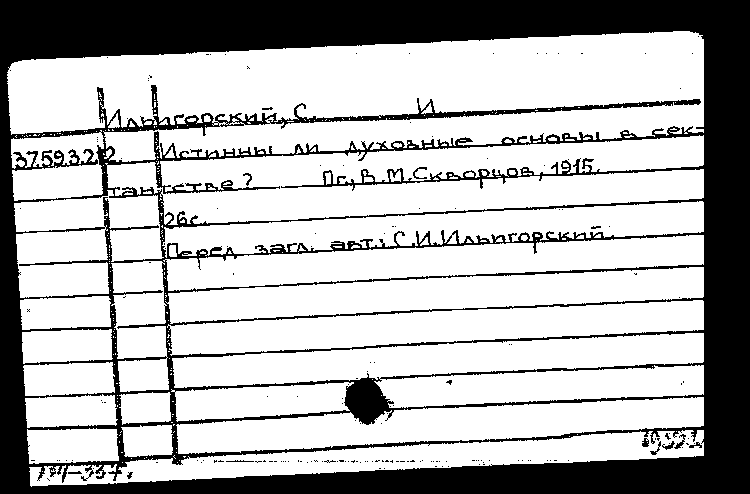 Ильигорский, С. И.
37.59.3.212. Истинны ли духовные основы в сек-
тантстве? Пг., В.М.Скворцов, 1915.
26с.
Перед загл. авт.: С.И.Ильигорский.